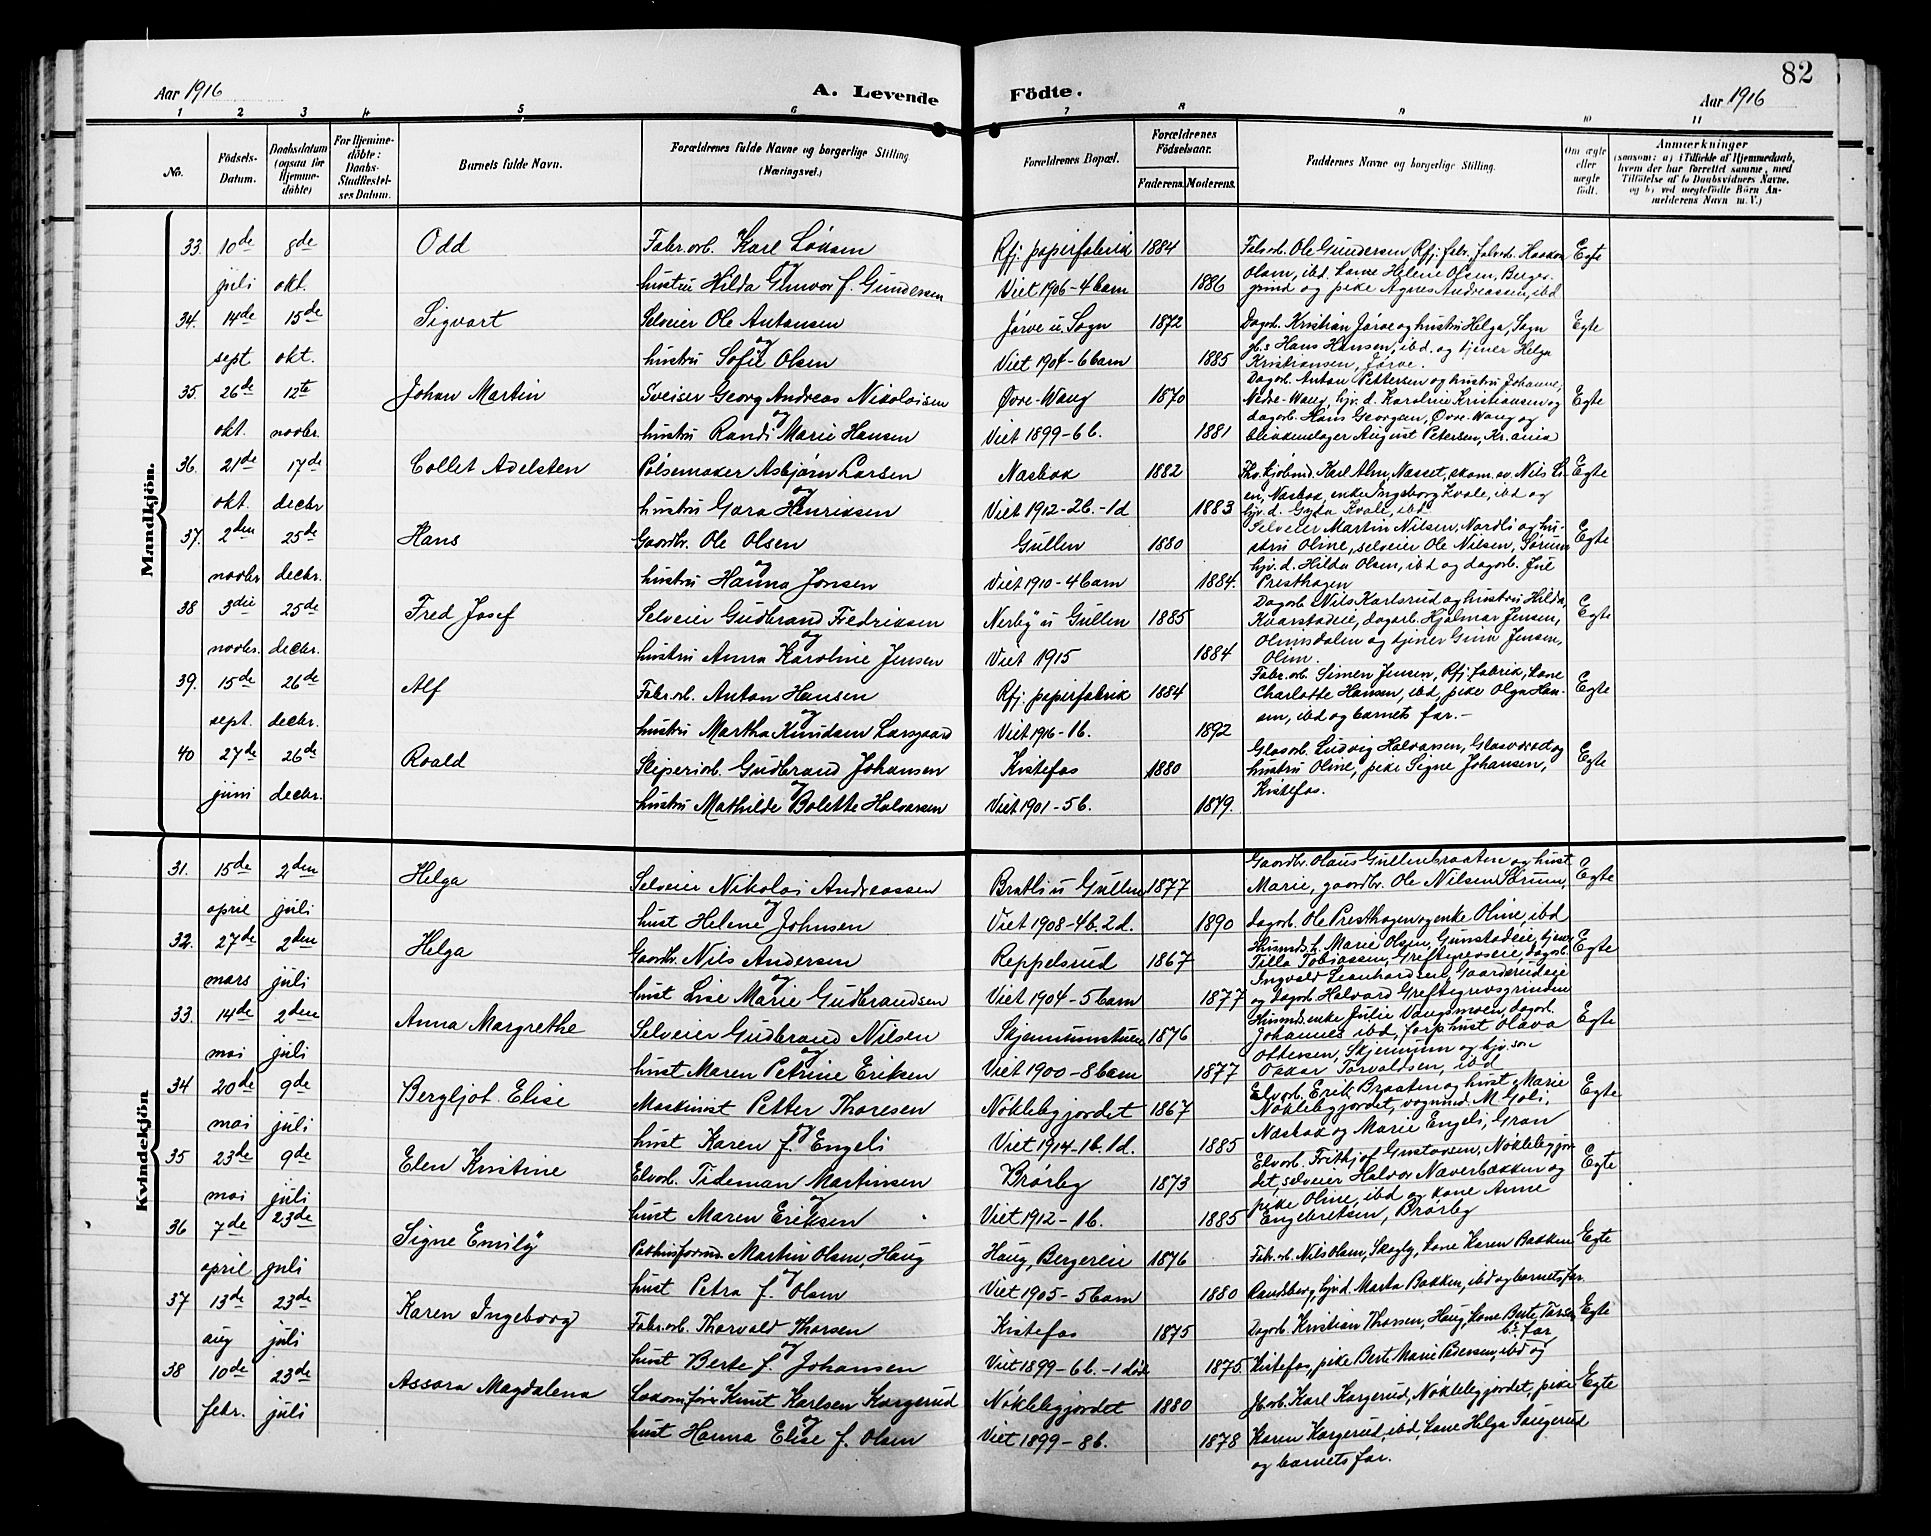 82
Aar 1916
A. Levende Födte.
Aar 1916
1 2 3 4 5 6 7 8 9 10 11
No.
Födsels-Datum.
Daabsdatum (ogsaa for Hjemmedöbte)
For Hjemmedöbte: Daabs-Stadfæstelses Datum.
Barnets fulde Navn.
Forældrenes fulde Navne og borgerlige Stilling (Næringsvei.)
Forældrenes Bopæl.
Forældrenes Födselsaar.
Faderens. Moderens.
Faddernes Navne og borgerlige Stilling.
Om ægte eller uægte født.
Anmærkninger
(saasom: a) i Tilfælde af Hjemmedaab, hvem der har forrettet samme, med Tilføielse af to Daabsvidners Navne, og b) ved uægtefödte Börn Anmelderens Navn m. V.)
Mandkjön.
33. 10de 8de Odd Fabr.arb. Karl Lönsen Rfj. papirfabrik 1884 Fabr.arb. Ole Gundersen, Rfj. fabr., fabr.arb. Haakon Egte
juli okt. og hustru Hilda Gunvor f. Gundersen Viet 1906 - 4 barn 1886 Olsen, ibd. kone Helene Olsen, Berger-
grind og pike Agnes Andreassen, ibd
34. 14de 15de Sigvart Selveier Ole Antonsen Jørve u. Sogn 1872 Dagarb. Kristian Jørve og hustru Helga, Sogn Egte
sept okt. og hustru Sofie Olsen Viet 1904 - 6 barn 1885 Hans Hansen, ibd. og tjener Helga
Kristiansen, Jørve.
35. 26de 12te Johan Martin Sveiser Georg Andreas Nikolaisen Øvre-Wang 1870 Dagarb. Anton Pettersen og hustru Johanne, Egte
Nedre-Wang, hjv. d. Karoline Kristiansen og
okt. novbr. og hustru Randi Marie Hansen Viet 1899 - 6 b. 1881 dagarb. Hans Georgsen, Øvre-Wang og
blikkenslager August Petersen, Kr.ania
36. 21de 17de Collet Adelsten Pølsemaker Asbjørn Larsen Næsbak 1882 Karl Alm, Næsset, skom. av Nils Egte
okt. decbr og hustru Gara Henriksen Viet 1912 - 2 b. - 1 d 1883 Næsbak, enke Ingeborg Kvale, ibd og
hjv. d. Gyda Kvale, ibd.
37. 2den 25de Hans Gaardbr. Ole Olsen Gullen 1880 Selveier Martin Nilsen, Nordli og hu- Egte
stru Oline, selveier Ole Nilsen, Sørum
novbr decbr. og hustru Hanna Jonsen Viet 1910 - 4 barn 1884. hjv. d. Hilda Olsen, ibd og dagarb. Juel
Presthagen
38 3die 25de Fred Josef Selveier Gudbrand Fredriksen Nerby u Gullen 1885 Dagarb Nils Karlsrud og hustru Hilda, Egte
Kvarstadeie, dagarb. Hjalmar Jensen,
novbr. decbr. og hustru Anna Karoline Jensen Viet 1915 1884 Olimsdalen og tjener Gina Jensen,
Olim.
39. 15de 26de Alf Fabr.arb. Anton Hansen Rfj. papirfabrik 1884 Fabr.arb. Simen Jensen, Rfj. fabrik, kone Egte
Charlotte Hansen, ibd, pike Olga Han-
sept. decbr. og hustru Martha Knudsen Larsgaard Viet 1916 - 1 b. 1892 sen, ibd og barnets far. -
40 27de 26de Roald Sliperiarb. Gudbrand Johansen Kistefos 1880 Glasarb. Ludvig Halvorsen, Glasverket og Egte
hustru Oline, pike Signe Johansen,
juni decbr. og hustru Mathilde Bolette Halvorsen Viet 1901 - 5 b. 1879. Kistefos.
Kvindekjön
31. 15de 2den Helga Selveier Nikolai Andreassen Bratli u Gullen 1877 Gaardbr. Olaus Gullenbraaten og hust Egte
Marie, gaardbr. Ole Nilsen Sørum,
april juli og hust Helene Johnsen Viet 1908 - 4 b. 2 d. 1890 dagarb. Ole Presthagen og enke Oline, ibd
32. 27de 2den Helga Gaardbr. Nils Andersen Reppelsrud 1867 Husmds. h. Marie Olsen, Gunstadeie, tjener Egte
Tilla Tobiassen, Greftegreveie, dagarb.
mars juli og hust Lise Marie Gudbrandsen Viet 1904 - 5 barn 1877 Ingvald Leonhardsen, Gaarderudeie
og dagarb Halvard Greftegrevsgrinden
33. 14de 2den Anna Margrethe Selveier Gudbrand Nilsen Skjennumstuen 1876 Husmds.enke Julie Vangsmoen, dagarb. Egte
Johannes ibd, forp.hust Olava
mai juli og hust Maren Petrine Eriksen Viet 1900 - 8 barn 1877 Ottersen, Skjennum og hjv. søn
Oskar Torvaldsen, ibd
34 20de 9de Bergljot Elise Maskinist Petter Thoresen Nøklebyjordet 1867 Elvarb. Erik Braaten og hust. Marie Egte
Nøklebyjordet, vognmd. M. Goli,
mai juli og hust Karen f. Engeli Viet 1914 - 1 b. 1 d. 1885 Næsbak og Marie Engeli, Gran
35 23de 9de Elen Kristine Elvarb. Tideman Martinsen Brørby 1873 Elvarb. Fritkjof Gustavsen, Nøklebyjor- Egte
det, selveier Halvor Næverbakken og
mai juli og hust Maren Eriksen Viet 1912 - 1 b. 1885 pike Oline, ibd og kone Anne
Engebretsen, Brørby
36 7de 23de Signe Emily Pakhusformd. Martin Olsen, Haug Haug, Bergereie 1876 Fabr.arb. Nils Olsen, Skogly, kone Karen Bakken Egte
april juli og hust Petra f. Olsen Viet 1905 - 5 barn 1880 Randsberg, hjv.d. Marta Bakken, ibd og barnets far.
37 13de 23de Karen Ingeborg Fabr.arb. Thorvald Thorsen Kistefos 1875 Dagarb. Kristian Thorsen, Haug, kone Berte Torsen Egte
aug juli og hust Berte f. Johansen Viet 1899 - 6 b. - 1 død 1875 Kistefos, pike Berte Marie Pedersen, ibd og b. far
38 10de 23de Assora Magdalena Lokomfører Knut Karlsen Korgerud Nøklebyjordet 1880 Karl Korgerud, Nøklebyjordet, pike Egte
febr. juli og hust Hanna Elise f. Olsen Viet 1899 - 8 b. 1878 Karen Korgerud, ibd, kone Helga Saugerud
og barnets far.